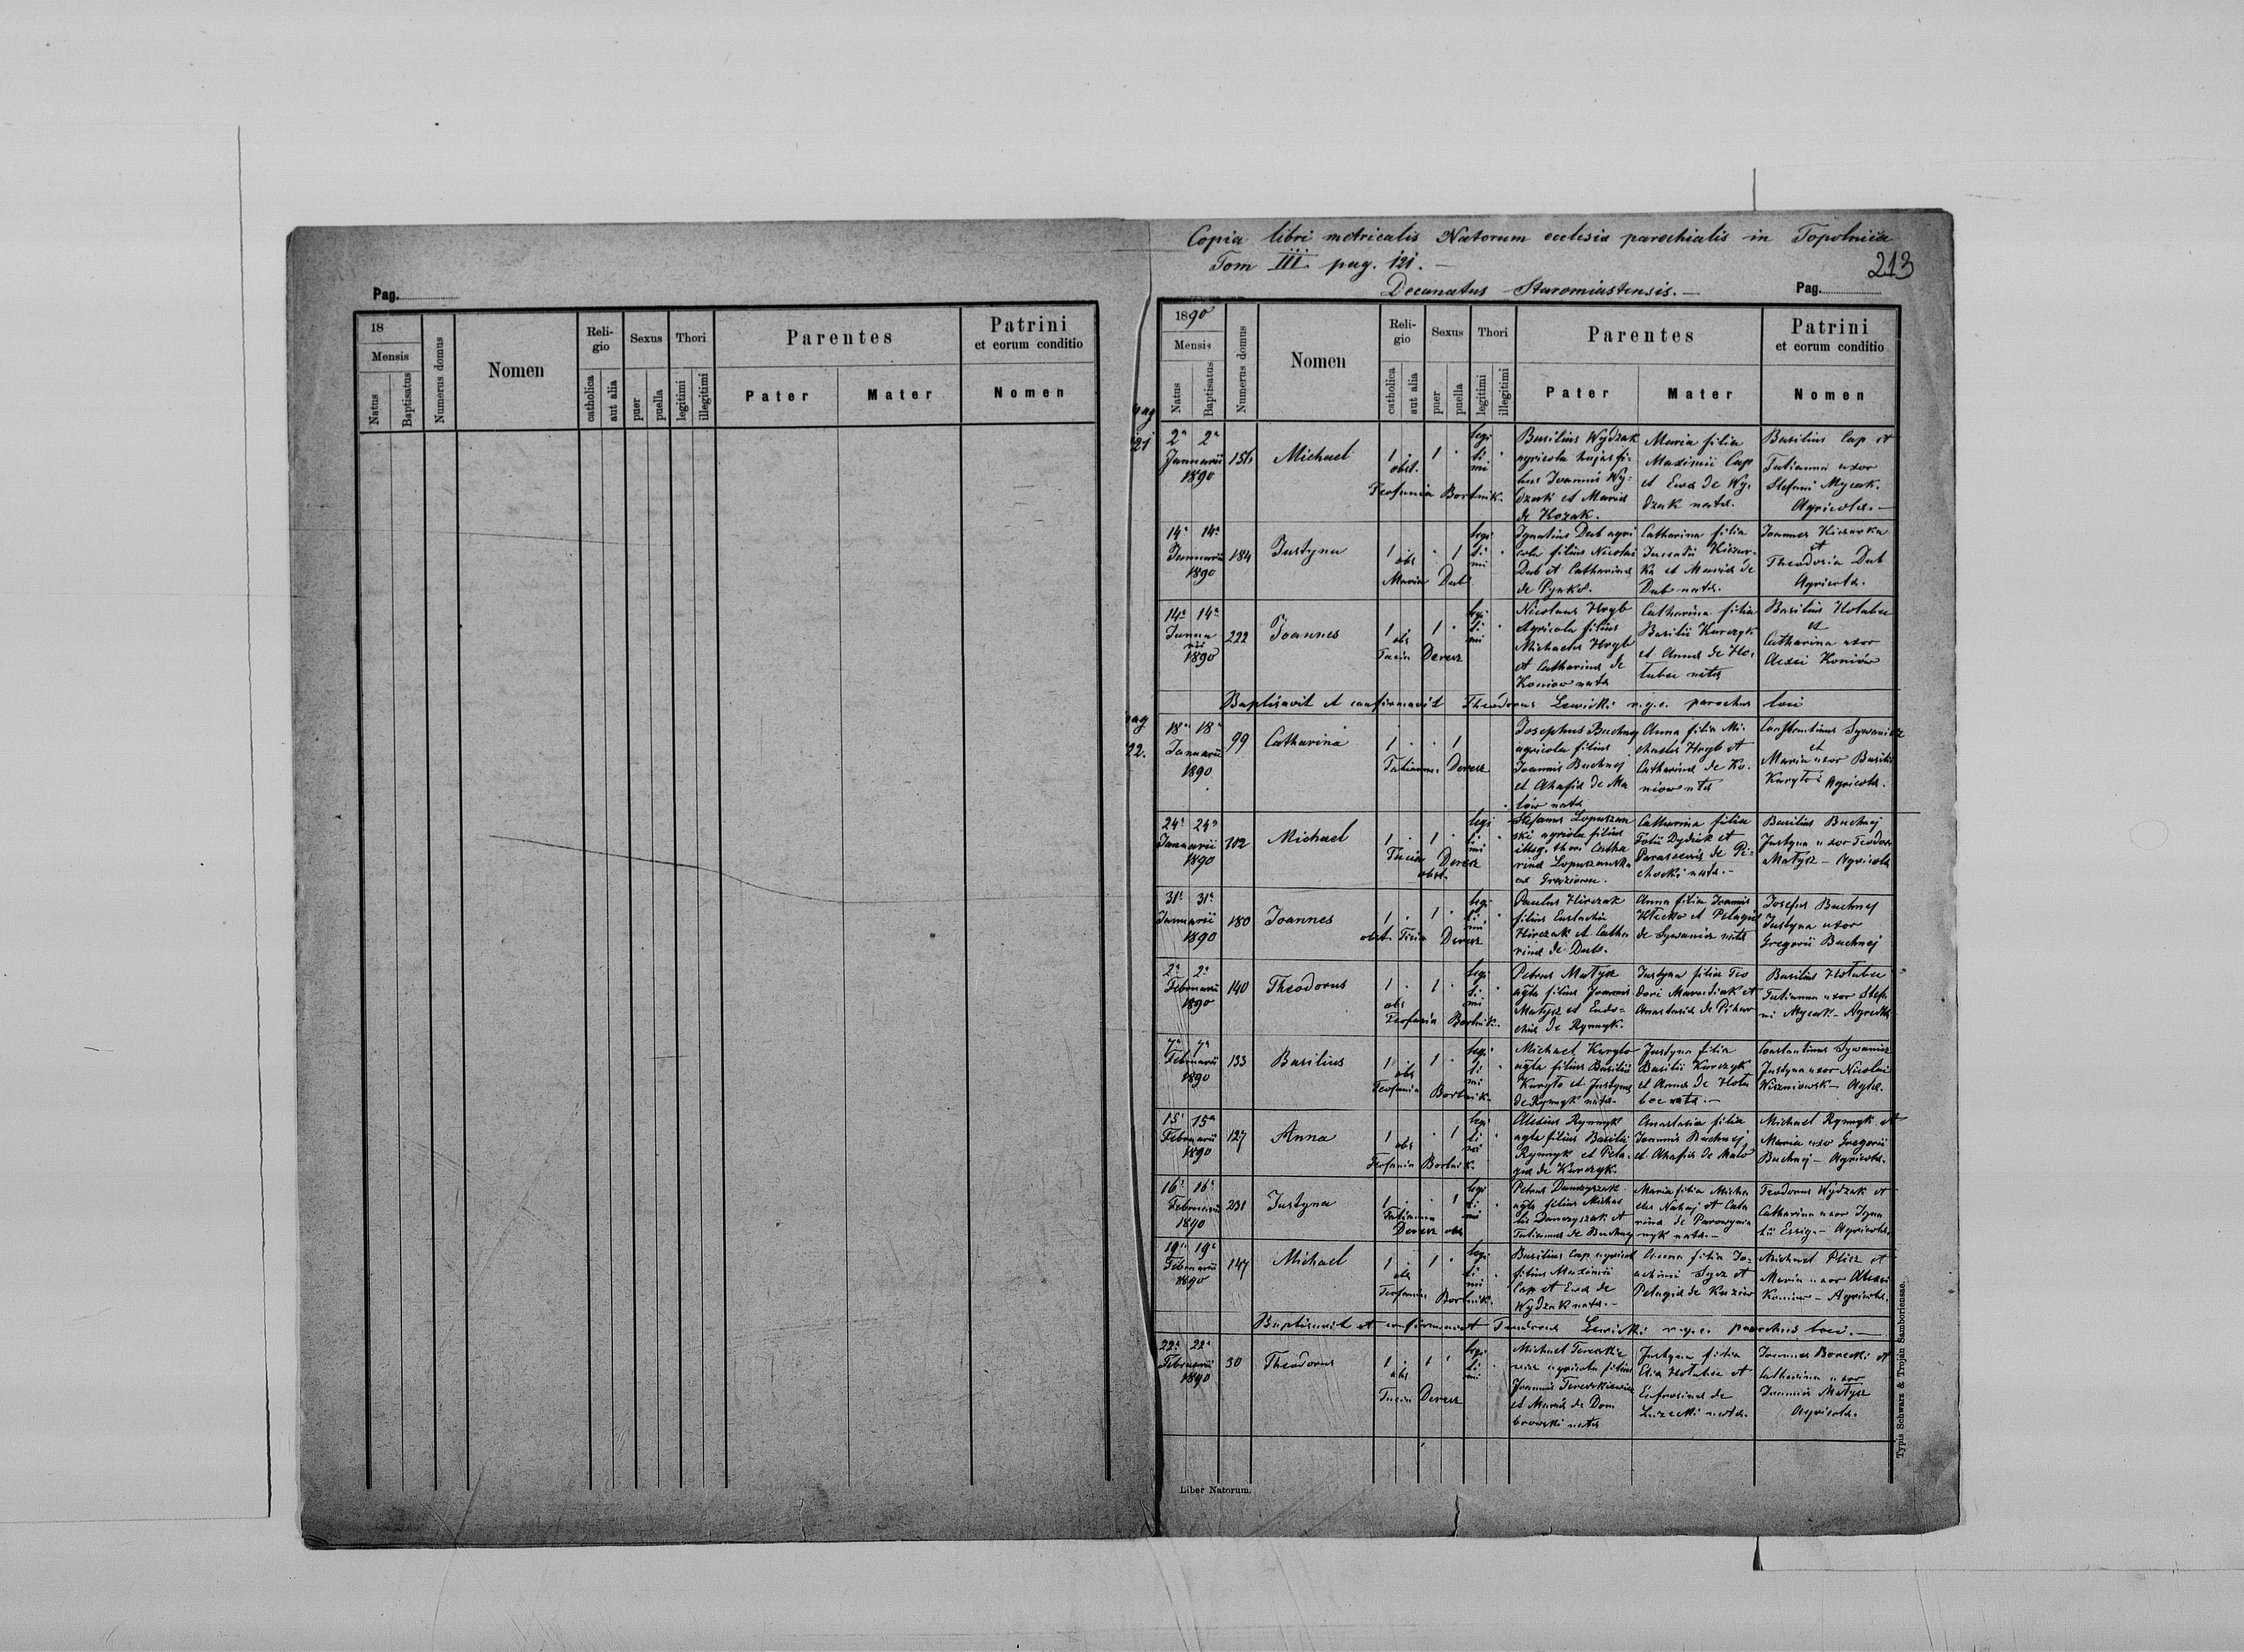 Copia libri metricalis Natorum ecclesiæ parochialis in Topolnica
Tom III pag. 121. —
213
Decanatus Staromiastensis. —
Pag.
Pag.
18
Mensis
Natus
Baptisatus
Numerus domus
Nomen
Reli-
gio
catholica
aut alia
Sexus
puer
puella
Thori
legitimi
illegitimi
Parentes
Pater
Mater
Patrini
et eorum conditio
Nomen
1890
Mensis
Natus
Baptisatus
Numerus domus
Nomen
Reli-
gio
catholica
aut alia
Sexus
puer
puella
Thori
legitimi
illegitimi
Parentes
Pater
Mater
Patrini
et eorum conditio
Nomen
pag
121
2a 2a
Januarii
1890
156
Michael
1 . 1 .
obst.
Teofania Bortnik.
legi
ti
mi
Basilius Wydzak
agricola hujas fi-
lius Joannis Wy-
dzak et Maria
de Kozak.
Maria filia
Maximii Cap
et Eva de Wy-
dzak nata.
Basilius Cap et
Tatianna uxor
Stefani Mycak.
Agricolæ. —
14a 14a
Januarii
1890
184
Justyna
1 . . 1
obs
Maria Dub
legi
ti
mi
Ignatius Dub agri
cola filius Nicolai
Dub et Catharina
de Pynko.
Catharina filia
Kiczur-
ka et Maria de
Dub nata.
Joannes Kiczurka
et
Theodosia Dub
Agricolæ.
14a 14a
Janua
rii
1890
222
Joannes
1 . 1 .
obs
Tacia Deresz
legi
ti
mi
Nicolaus Hryb
Agricola filius
Michaelis Hryb
et Catharina de
Koniow nata
Catharina filia
Basilii Kurczyk
et Anna de Ho-
lubec nata
Basilius Holubec
et
Catharina uxor
Alexii Koniów
Baptisavit et confirmavit Theodorus Lewicki r.g.c. parochus loci
pag
122.
18a 18a
Januarii
1890
99
Catharina
1 . . 1
Tatianna Deresz
Josephus Buchnej
agricola filius
Joannis Buchnej
et Ahafia de Ma
lów nata
Anna filia Mi-
chaelis Hryb et
Catharina de Ko-
niow nta
Constantinus Sywanicz
et
Maria uxor Basilii
Kuryło Agricolæ.
24a 24a
Januarii
1890
102
Michael
1 . 1 .
Tacia Deresz
obst.
legi
ti
mi
Stefanus Lopuszan
ski agricola filius
illeg. thori Catha
rina Lopuszanska
Catharina filia
Fotii Dydiak et
Parascevia de Pi-
chocki nata. -
Basilius Buchnej
Justyna uxor Teodori
Matysz - Agricolæ
31a 31a
Januarii
1890
180
Joannes
1 . 1 .
obst. Tacia Deresz
legi
ti
mi
Paulus Hirczak
filius Eustachii
Hirczak et Catha
rina de Dub.
Anna filia Joannis
Klecko et Pelagia
de Sywanicz nata
Josefus Buchnej
Justyna uxor
Gregorii Buchnej
2a 2a
Februarii
1890
140
Theodorus
1 . 1 .
obs
Teofania Bortnik.
legi
ti
mi
Petrus Matysz
agla filius Joannis
Matysz et Eudo-
chia de Rymyk.
Justyna filia Teo
dori et
Anastasia de
Basilius Holubec
Tatianna uxor Stefa
ni Mycak - Agricolæ
7a 7a
Februarii
1890
133
Basilius
1 . 1 .
obs
Teofania Bortnik.
legi
ti
mi
Michael Kuryło
agla filius Basilii
Kuryło et Justyna
de Rymyk nata.
Justyna filia
Basilii Kurczyk
et Anna de Holu
bec nata. -
Constantinus Sywanicz
Justyna uxor Nicolai
Wiszniowsk - Aglæ.
15a 15a
Februarii
1890
127
Anna
1 . . 1
obs
Teofania Bortnik.
legi
ti
mi
Alexius Rymyk
agla filius Basilii
Rymyk et Pela-
gia de Kurczyk.
Anastasia filia
Joannis Buchnej
et Ahafia de Malo
Michael Rymyk et
Maria uxor Gregorii
Buchnej - Agricolæ.
16a 16a
Februarii
1890
231
Justyna
1 . . 1
Tatianna
Deresz obs
legi
ti
mi
Petrus Danczyszak
agla filius Michae
lis Danczyszak et
Tatianna de Buchnej
Maria filia Micha
elis Nahaj et Catha
rina de
nyk nata. -
Teodorus Wydzak et
Catharina uxor Igna
tii - Agricolæ.
19a 19a
Februarii
1890
147
Michael
1 . 1 .
obs
Teofania Bortnik.
legi
ti
mi
Basilius Cap agricola
filius Maximii
Cap et Eva de
Wydzak nata. -
Anna filia Jo-
achimi et
Pelagia de Kuziw
Michael Plisz et
Maria uxor Alexii
Koniow - Agricolæ.
Baptisavit et confirmavit Teodorus Lewicki r.g.c. parochus loci. —
22a 22a
Februarii
1890
30
Theodorus
1 . 1 .
obs
Tacia Deresz
legi
ti
mi
Michael Tereszkie
wicz agricola filius
Joannis Tereszkiewicz
et Maria de Dom
browski nata
Justyna filia
Elia Holubec et
Eufrosina de
Luzecki nata.
Joannes Borecki et
Catharina uxor
Joannis Matysz
Agricolæ.
Liber Natorum.
Typis Schwarz & Trojan Samboriensae.